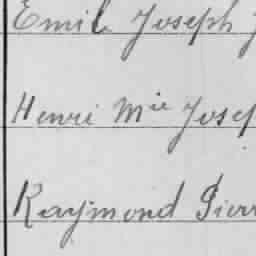 Emile Joseph J
Henri Mie Josep
Raymond Pierr